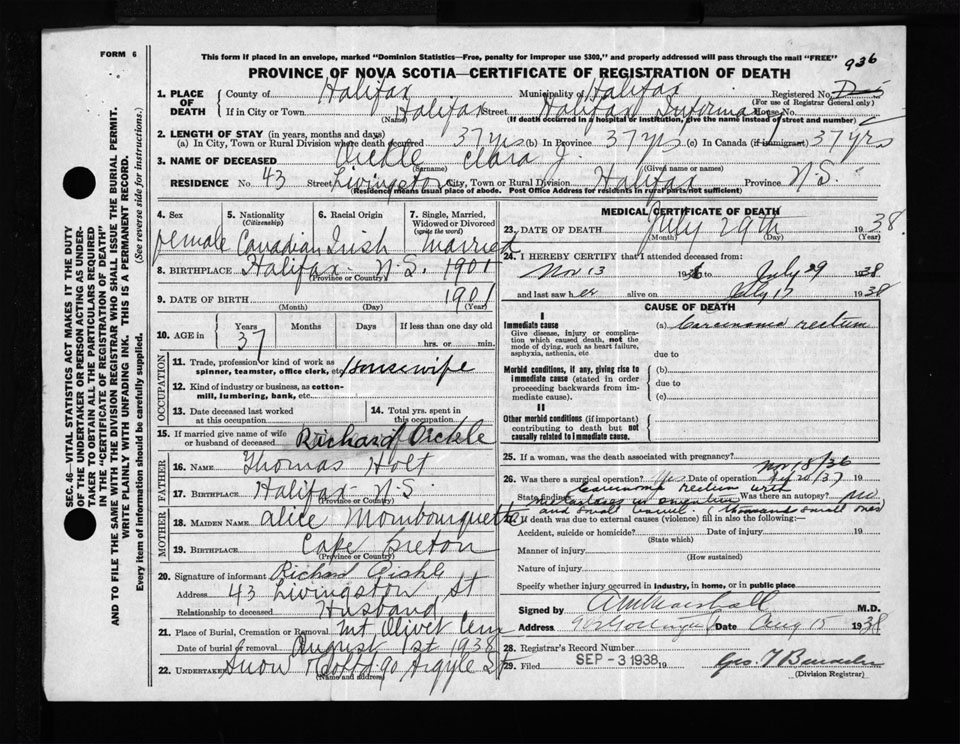 FORM 6
This form if placed in an envelope, marked "Dominion Statistics—Free, penalty for improper use $300," and properly addressed will pass through the mail "FREE"
936
PROVINCE OF NOVA SCOTIA—CERTIFICATE OF REGISTRATION OF DEATH
1. PLACE OF DEATH County of Halifax Municipality of Halifax Registered No.
(For use of Registrar General only)
If in City or Town Halifax Street Halifax Infirmary House No.
(Name) (If death occurred in a hospital or institution, give the name instead of street and number)
2. LENGTH OF STAY (in years, months and days)
(a) In City, Town or Rural Division where death occurred 37 yrs (b) In Province 37 yrs (c) In Canada (if immigrant) 37 yrs
3. NAME OF DECEASED Dickle Clara J.
(Surname) (Given name or names)
RESIDENCE No. 43 Street Livingston City, Town or Rural Division Halifax Province N.S.
(Residence means usual place of abode. Post Office Address for residents in rural parts not sufficient)
4. Sex female
5. Nationality (Citizenship) Canadian
6. Racial Origin Irish
7. Single, Married, Widowed or Divorced (write the word) married
8. BIRTHPLACE Halifax N.S. 1901
(Province or Country)
9. DATE OF BIRTH 1901
(Month) (Day) (Year)
10. AGE in Years 37 Months Days If less than one day old hrs. or min.
OCCUPATION
11. Trade, profession or kind of work as spinner, teamster, office clerk, etc. Housewife
12. Kind of industry or business, as cotton-mill, lumbering, bank, etc.
13. Date deceased last worked at this occupation
14. Total yrs. spent in this occupation
15. If married give name of wife or husband of deceased Richard Dickle
FATHER
16. NAME Thomas Holt
17. BIRTHPLACE Halifax N.S.
(Province or Country)
MOTHER
18. MAIDEN NAME Alice Mombourquette
19. BIRTHPLACE Cape Breton
(Province or Country)
20. Signature of informant Richard Dickle
Address 43 Livingston St
Relationship to deceased Husband
21. Place of Burial, Cremation or Removal Mt Olivet Cem
Date of burial or removal August 1st 1938
22. UNDERTAKER Snow & Co Ltd 90 Argyle St
(Name and address)
MEDICAL CERTIFICATE OF DEATH
23. DATE OF DEATH July 29th 1938.
(Month) (Day) (Year)
24. I HEREBY CERTIFY that I attended deceased from:
Nov 13 1936 to July 29 1938
and last saw her alive on July 17 1938
CAUSE OF DEATH
I
Immediate cause
Give disease, injury or complication which caused death, not the mode of dying, such as heart failure, asphyxia, asthenia, etc
(a) Carcinoma rectum
due to
Morbid conditions, if any, giving rise to immediate cause (stated in order proceeding backwards from immediate cause).
(b)
due to
(c)
II
Other morbid conditions (if important) contributing to death but not causally related to immediate cause.
25. If a woman, was the death associated with pregnancy?
Nov 18/36
26. Was there a surgical operation? Yes Date of operation 19
State findings Carcinoma rectum with metastases in omentum Was there an autopsy? no
and small bowel. (thousands small ones)
27. If death was due to external causes (violence) fill in also the following:—
Accident, suicide or homicide? Date of injury 19
(State which)
Manner of injury
(How sustained)
Nature of injury
Specify whether injury occurred in industry, in home, or in public place
Signed by M.D.
Address Date Aug 15 1938
28. Registrar's Record Number
29. Filed SEP -3 1938 19
(Division Registrar)
SEC. 46—VITAL STATISTICS ACT MAKES IT THE DUTY OF THE UNDERTAKER OR PERSON ACTING AS UNDERTAKER TO OBTAIN ALL THE PARTICULARS REQUIRED IN THE "CERTIFICATE OF REGISTRATION OF DEATH" AND TO FILE THE SAME WITH THE DIVISION REGISTRAR WHO SHALL ISSUE THE BURIAL PERMIT.
WRITE PLAINLY WITH UNFADING INK. THIS IS A PERMANENT RECORD.
Every item of information should be carefully supplied. (See reverse side for instructions.)